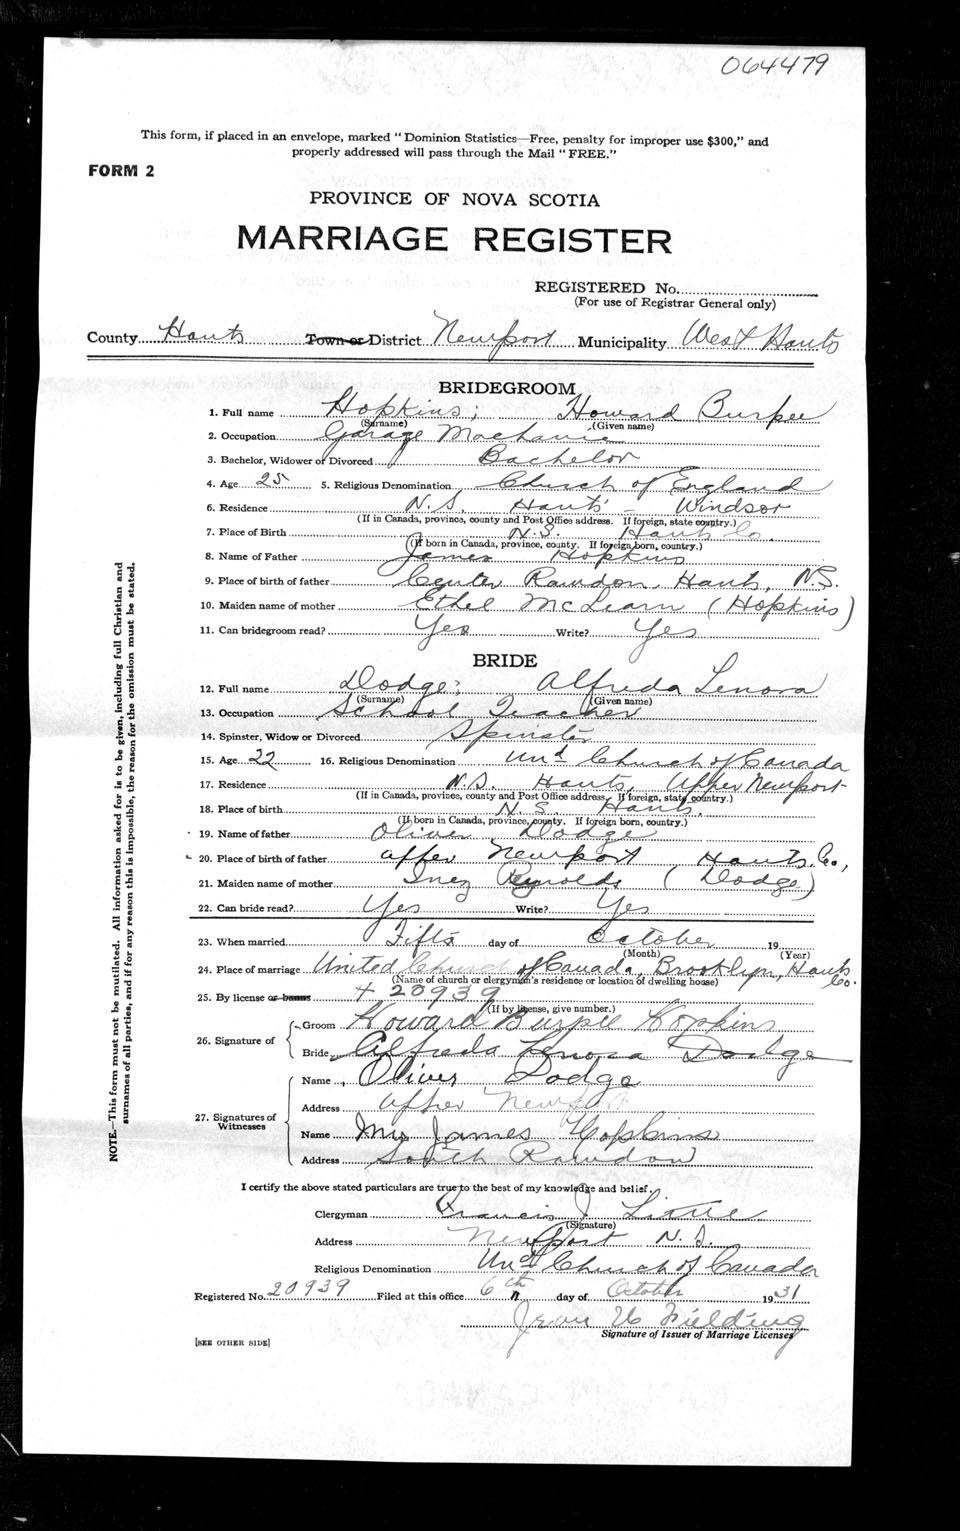 064479
This form, if placed in an envelope, marked "Dominion Statistics—Free, penalty for improper use $300," and
properly addressed will pass through the Mail "FREE."
FORM 2
PROVINCE OF NOVA SCOTIA
MARRIAGE REGISTER
REGISTERED No.
(For use of Registrar General only)
County Hants Town or District Newport Municipality West Hants
BRIDEGROOM
1. Full name Hopkins; Howard Burpee
(Surname) (Given name)
2. Occupation Garage Mechanic
3. Bachelor, Widower or Divorced Bachelor
4. Age 25 5. Religious Denomination Church of England
6. Residence N.S. Hants - Windsor
(If in Canada, province, county and Post Office address. If foreign, state country.)
7. Place of Birth N.S. Hants Co.
(If born in Canada, province, county. If foreign born, country.)
8. Name of Father James Hopkins
9. Place of birth of father Center Rawdon, Hants, N.S.
10. Maiden name of mother Ethel McLearn (Hopkins)
11. Can bridegroom read? Yes Write? Yes
BRIDE
12. Full name Dodge; Alfreda Lenora
(Surname) (Given name)
13. Occupation School Teacher
14. Spinster, Widow or Divorced Spinster
15. Age 22 16. Religious Denomination Und Church of Canada
17. Residence N.S. Hants, Upper Newport
(If in Canada, province, county and Post Office address. If foreign, state country.)
18. Place of birth N.S. Hants.
(If born in Canada, province, county. If foreign born, country.)
19. Name of father Oliver Dodge
20. Place of birth of father Upper Newport Hants Co,
21. Maiden name of mother Inez Reynolds (Dodge)
22. Can bride read? Yes Write? Yes
23. When married Fifth day of October 19
(Month) (Year)
24. Place of marriage United Church of Canada, Brooklyn, Hants Co.
(Name of church or clergyman's residence or location of dwelling house)
25. By license or banns + 20939
(If by license, give number.)
26. Signature of Groom Howard Burpee Hopkins
Bride Alfreda Lenora Dodge
27. Signatures of Witnesses
Name Oliver Dodge
Address Upper Newport
Name Mrs James Hopkins
Address South Rawdon
I certify the above stated particulars are true to the best of my knowledge and belief.
Clergyman Francis J. Little
(Signature)
Address Newport N.S.
Religious Denomination Und Church of Canada
Registered No. 20939 Filed at this office 6th day of October 1931
Fielding
Signature of Issuer of Marriage Licenses
[SEE OTHER SIDE]
NOTE.—This form must not be mutilated. All information asked for is to be given, including full Christian and
surnames of all parties, and if for any reason this is impossible, the reason for the omission must be stated.